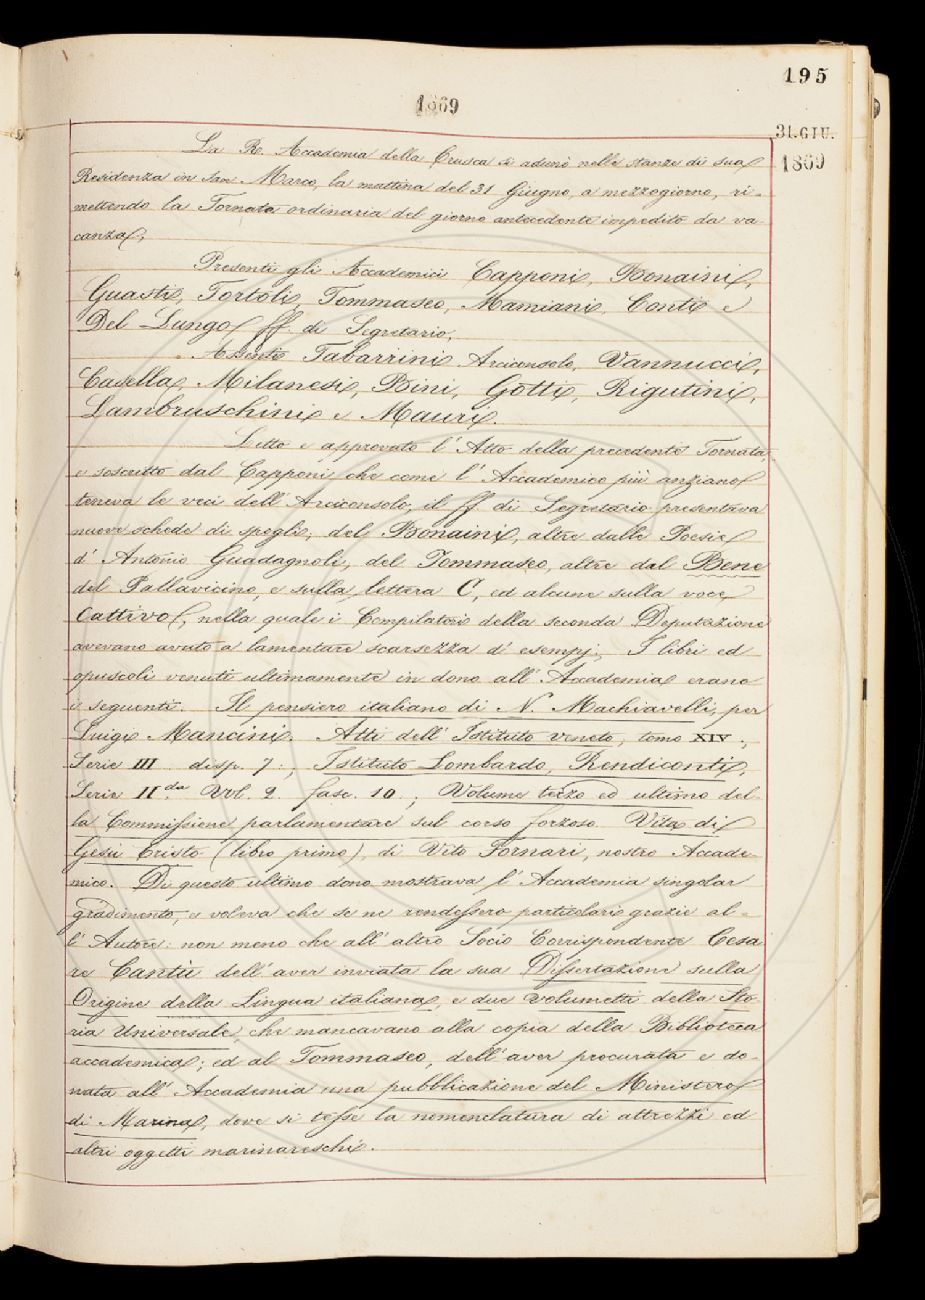 195
1869
31.GIU.
1869
La R. Accademia della Crusca si adunò nelle stanze di sua
Residenza in San Marco, la mattina del 31 Giugno, a mezzogiorno, ri-
mettendo la Tornata ordinaria del giorno antecedente impedito da va-
canza,
Presenti gli Accademici Capponi, Bonaini,
Guasti, Tortoli, Tommaseo, Mamiani, Conti e
Del Lungo ff. di Segretario,
Assenti Tabarrini Arciconsolo, Vannucci,
Casella, Milanesi, Bini, Gotti, Rigutini,
Lambruschini e Mauri.
Letto e approvato l'Atto della precedente Tornata,
e soscritto dal Capponi che come l'Accademico più anziano
teneva le veci dell'Arciconsolo, il ff. di Segretario presentava
nuove schede di spogli, del Bonaini, altre dalle Poesie
d'Antonio Guadagnoli, del Tommaseo, altre dal Bene
del Pallavicino, e sulla lettera C, ed alcune sulla voce
Cattivo, nella quale i Compilatori della seconda Deputazione
avevano avuto a lamentare scarsezza d'esempj; I libri ed
opuscoli venuti ultimamente in dono all'Accademia erano
i seguenti. Il pensiero italiano di N. Machiavelli, per
Luigi Mancini. Atti dell'Istituto veneto, tomo XIV.,
Serie III. disp. 7:, Istituto Lombardo, Rendiconti,
Serie II.da Vol. 2 fasc. 10.; Volume terzo ed ultimo del-
la Commissione parlamentare sul corso forzoso. Vita di
Gesù Cristo (libro primo), di Vito Fornari, nostro Accade-
mico. Di questo ultimo dono mostrava l'Accademia singolar
gradimento, e voleva che se ne rendessero particolari grazie al-
l'Autore: non meno che all'altro Socio Corrispondente Cesa
re Cantù dell'aver inviata la sua Dissertazione sulla
Origine della Lingua italiana, e due volumetti della Sto-
ria Universale, che mancavano alla copia della Biblioteca
accademica; ed al Tommaseo, dell'aver procurata e do-
nata all'Accademia una pubblicazione del Ministero
di Marina, dove si tesse la nomenclatura di attrezzi ed
altri oggetti marinareschi.